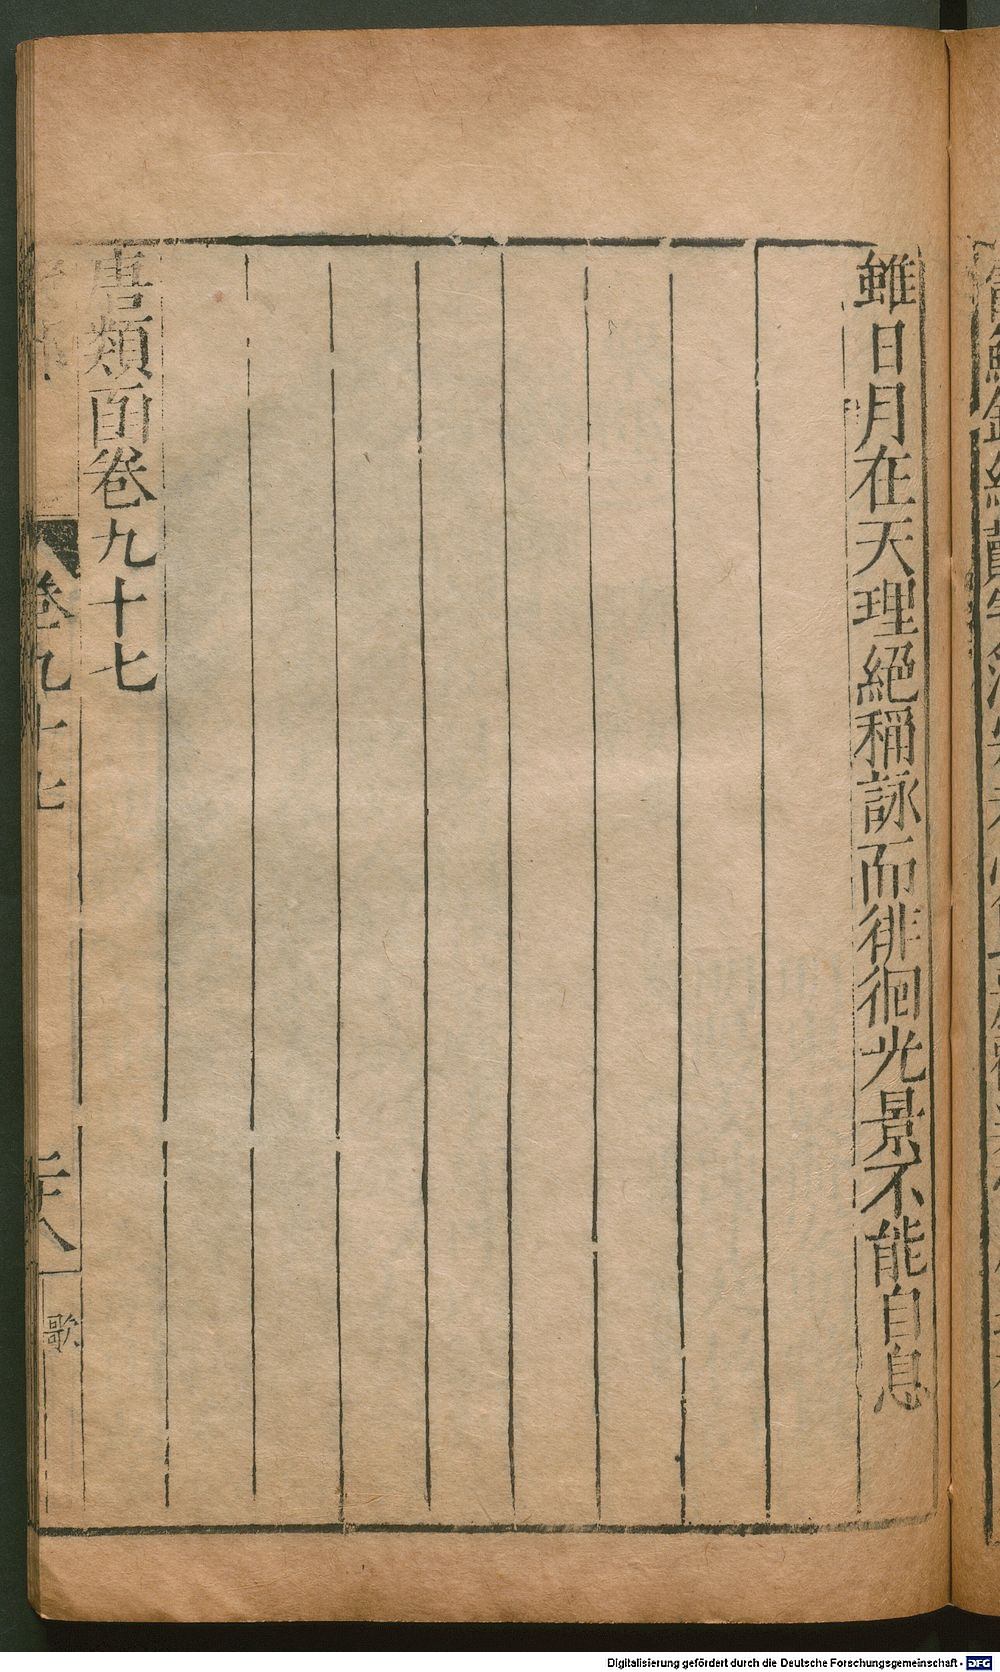 雖日月在天理絕稱詠而徘徊光景不能自息
唐類函卷九十七
卷九十七
歌
Digitalisierung gefördert durch die Deutsche Forschungsgemeinschaft - DFG